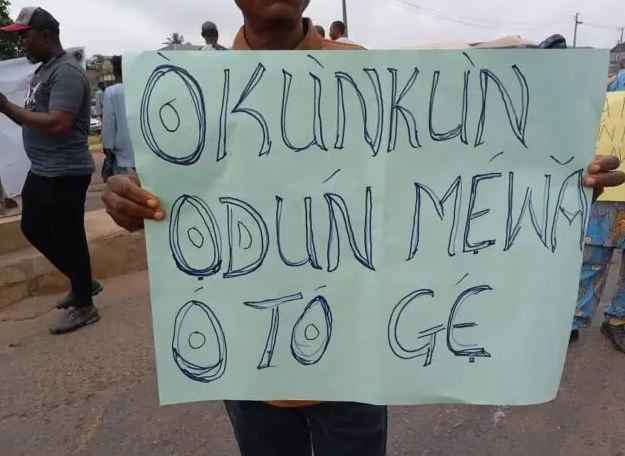 ÒKÙNKÙN
ỌDÚN MẸ́WǍ
Ó TÓ GẸ́